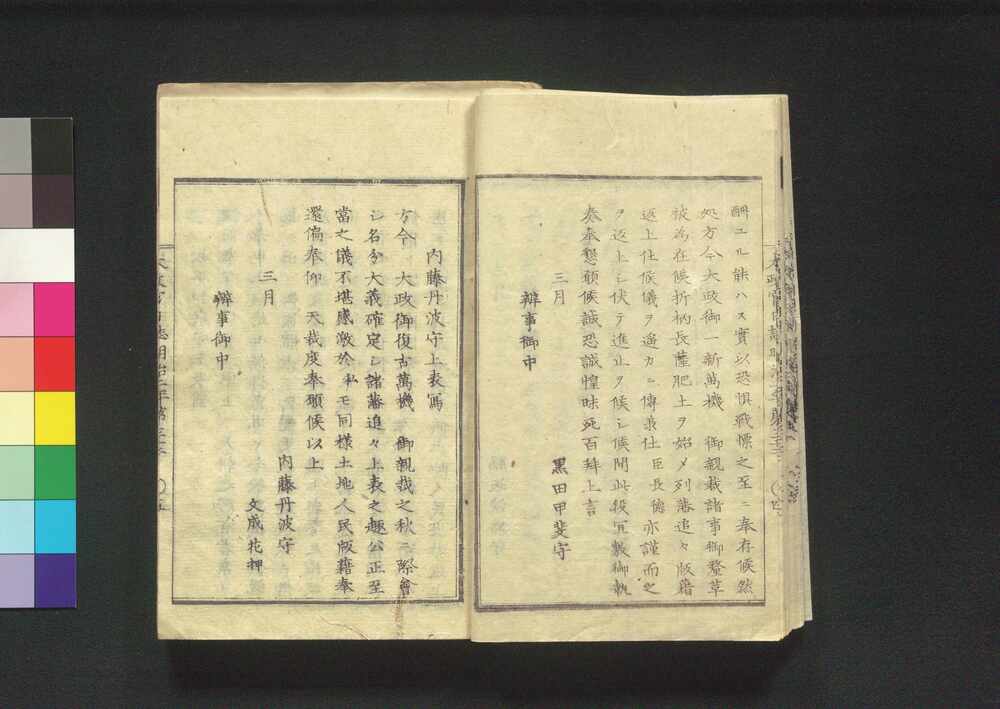 酬ユル能ハス實以恐惧戰慄之至ニ奉存候然
処方今大政御一新萬機　御親裁諸事御釐革
被為在候折柄長薩肥土ヲ始メ列藩追々版籍
返上仕候儀ヲ遥カニ傳羨仕臣長徳亦謹而之
ヲ返上シ伏テ進止ヲ候シ候間此段冝敷御執
奏奉懇願候誠恐誠惶昧死百拜上言
三月
黒田甲斐守
辨事御中
内藤丹波守上表寫
方今　大政御復古萬機　御親裁之秋ニ際會
シ名分大義確定シ諸藩追々上表之趣公正至
當之儀不堪感激於私モ同樣土地人民版籍奉
還偏奉仰　天裁度奉願候以上
三月
内藤丹波守
文成花押
辨事御中